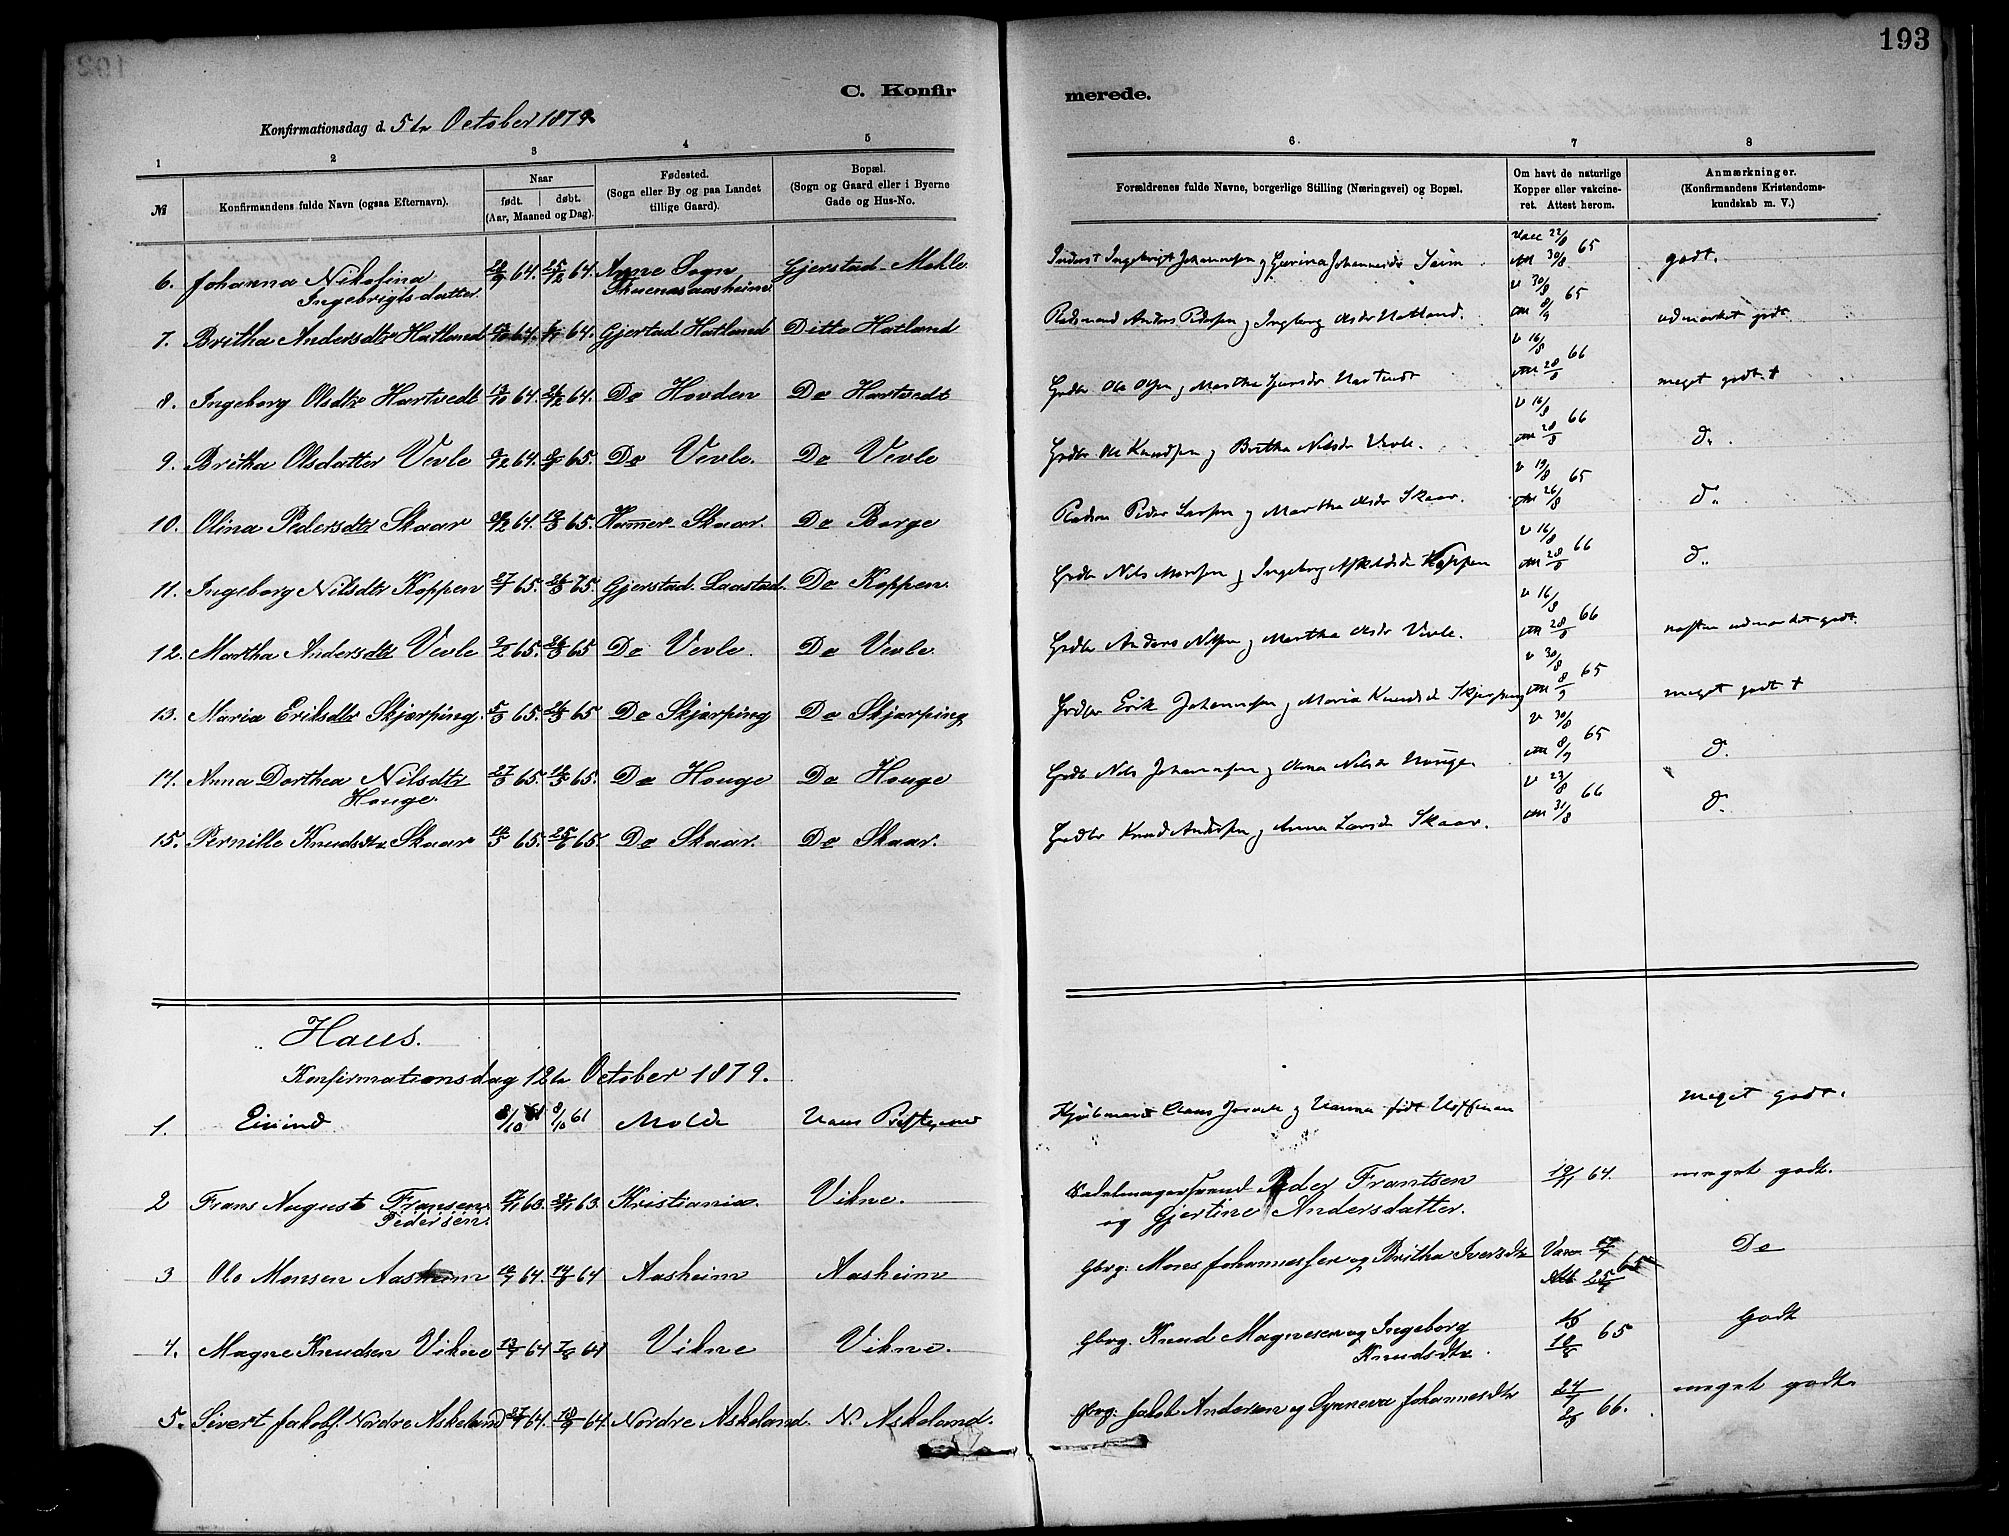 193
C. Konfir
merede.
Konfirmationsdag d. 5te October 1879
1 2 3 4 5 6. 7 8
№ Konfirmandens fulde Navn (ogsaa Efternavn). Naar født. døbt. (Aar, Maaned og Dag). Fødested. (Sogn eller By og paa Landet tillige Gaard). Bopæl. (Sogn og Gaard eller i Byerne Gade og Hus-No. Forældrenes fulde Navne, borgerlige Stilling (Næringsvei) og Bopæl. Om havt de naturlige Kopper eller vakcineret. Attest herom. Anmærkninger. (Konfirmandens Kristendomskundskab m. V.)
6. Johanna Nikolina 64. 64. Arne Sogn Gjerstad-Mehle Ingebrigt Johannesen og Gjerina Johannesdr Seim 22/8 65 godt.
Ingebrigtsdatter 30/8
7. Britha Andersdtr Hatland 64. 64. Gjerstad Hatland Ditto Hatland Anders Pedersen og Ingborg Olsdr Hatland. v 30/8 65 8/9 udmærket godt
8. Ingeborg Olsdtr Hartvedt 64. 64. Do Hovden Do Hartvedt Grdbr Ole Olsen og Martha Hartvedt v 16/8 66 28/8 meget godt +
9. Britha Olsdatter Vevle 64. 65. Do Vevle. Do Vevle Grdbr Ole Knudsen og Britha Nilsdr Vevle. v 16/8 66 28/8 do.
10. Olina Pedersdtr Skaar 64. 65. Hammer-Skaar. Do Borge Peder Larsen og Martha Olsdr Skaar. v 19/8 65 26/8 do
11. Ingeborg Nilsdtr Koppen 27/1 65. 26/3 75. Gjerstad. Laastad. Do Koppen. Grdbr Nils Monsen og Ingeborg Koppen v 16/8 66 28/8 do
12. Martha Andersdtr Vevle 9/2 65. 26/3 65 Do Vevle. Do Vevle. Grdbr Anders Nilsen og Martha Olsdr Vevle. v 16/8 66 28/8 næsten udmærket godt.
13. Maria Eriksdtr Skjærping. 5/3 65. 26/3 65 Do Skjærping Do Skjærping Grdbr Erik Johannesen og Maria Knudsdr Skjerping v 30/8 65 8/9 meget godt +
14. Anna Dorthea Nilsdtr 27/3 65. 65. Do Houge Do Houge Grdbr Nils Johannesen og Anna Nilsdr Houge v 30/8 65 8/9 do.
Houge.
15. Pernille Knudsdtr Skaar 65. 25/6 65. Do Skaar. Do Skaar. Grdbr Knud Andersen og Anna Larsdr Skaar. v 23/8 66 31/8 do.
Haus.
Konfirmationsdag 12te October 1879.
1. Eivind 8/10 61 8/10 61 Molde Haus Kjøbmand Claus og Hanna født Hoffman meget godt.
2 Frans August Fransen 63. 63. Kristiania. Vikne. Sadelmagersvend Peder Frantsen 19/7 64. meget godt.
Pedersen. og Gjertine Andersdatter.
3 Ole Monsen Aasheim 64. 14/8 64 Aasheim Aasheim Gbrg: Mons Johannessen og Britha Iversdtr Vacc. 17/7 65 Att. 25/7 Do
4. Magne Knudsen Vikne 13/7 64 7/8 64 Vikne Vikne. Gbrg. Knud Magnesen og Ingeborg 65 godt
Knudsdtr. 10/8
5. Sivert Jakobs. Nordre Askeland 27/7 64. 64. Nordre Askeland. N. Askeland. Gbrg: Jakob Andersen og Synneva Johannesdtr 24/7 66. 2/8 meget godt.